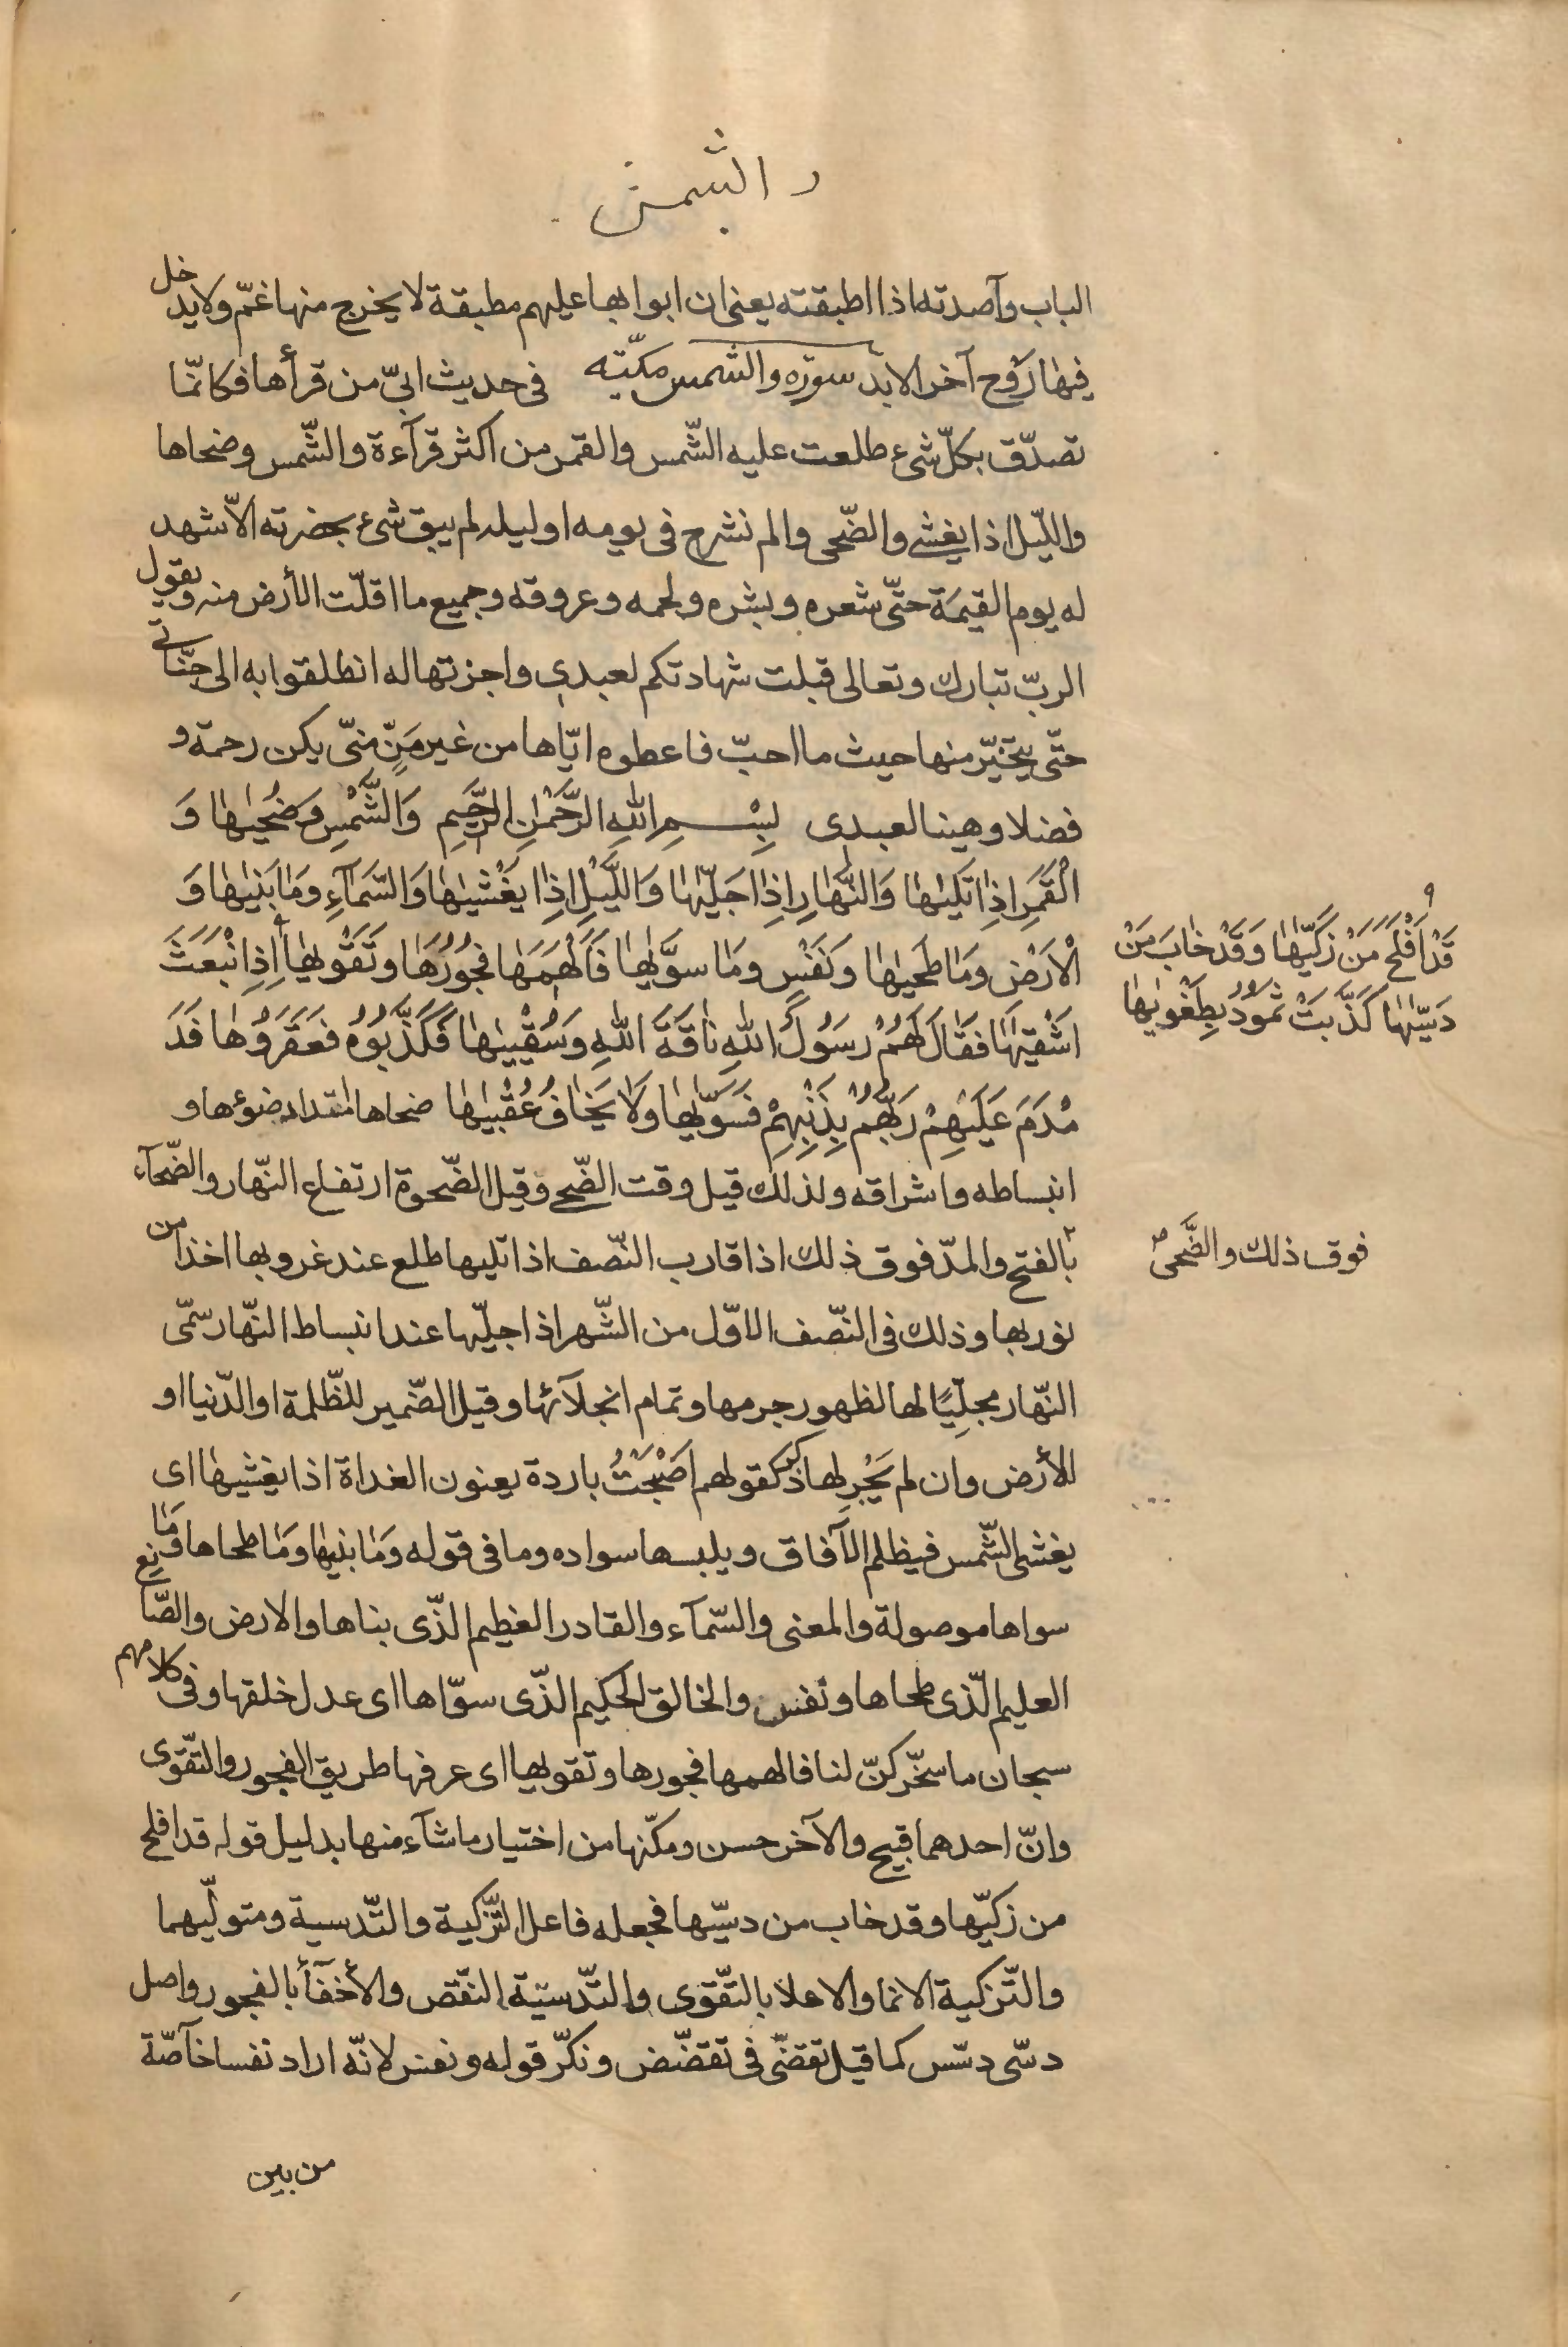 والشمس
الباب وآصدته اذا اطبقته يعنى ان ابوابها عليهم مطبقة لا يخرج منها غمّ ولا يدخل
فيها رَوح آخر الابد سورة والشمس مكّيّه فى حديث ابىّ من قرأها فكانّما
تصدّق بكلّ شىء طلعت عليه الشّمس والقمر من اكثر قرآءة والشّمس وضحاها
واللّيل اذا يغشى والضّحى والم نشرح فى يومه او ليله لم يبق شىء بحضرته الاّ شهد
له يوم القيمَة حتّى شعره وبشره ولحمه وعروقه وجميع ما اقلّت الأرض منه ويقول
الربّ تبارك وتعالى قبلت شهادتكم لعبدى واجزتها له انطلقوا به الى جنّاتى
حتّى يتخيّر منها حيث ما احبّ فاعطوه ايّاها من غير مَنٍّ منّى يكن رحمة و
فضلا وهينا لعبدى بِسْمِ اللّٰهِ الرَّحْمٰنِ الرَّحيَمِ وَالشَّمْسِ وَضُحٰيهٰا وَ
الْقَمَرِ اِذٰا تَلَيٰهٰا وَالنَّهٰارِ اِذٰا جَلّيٰهٰا وَاللَّيْلِ اِذٰا يَغْشٰيهٰا وَالسَّمَآءِ وَمٰا بَنٰيهٰا وَ
الْاَرْضِ وَمٰا طَحٰيهٰا وَنَفْسٍ وَمٰا سوَّيٰهٰا فَاَلْهَمَهٰا فُجُورَهٰا وَتَقْوٰيهٰا اِذِ انْبَعَثَ
قَدْ اَفْلَحَ مَنْ زَكّيٰهٰا وَقَدْ خٰابَ مَنْ
دَسّٰيهٰا كَذَّبَتْ ثَمُودُ بِطَغْوٰيهٰا
اَشْقٰيهٰا فَقٰالَ لَهُمْ رَسُولُ اللّٰهِ نٰاقَةَ اللّٰهِ وَسُقْيٰيهٰا فَكَذَّبُوُه فَعَقَرُوهٰا فَدَ
مْدَمَ عَلَيْهِمْ رَبُّهُمْ بِذَنْبِهِمْ فَسَوّٰيهٰا وَلٰا يَخٰافُ عُقْبٰيهٰا ضحاها امتداد ضوءها و
انبساطه واشراقه ولذلك قيل وقت الضّحى وقيل الضّحوة ارتفاع النّهار والضّحآء
بالفتح والمدّ فوق ذلك اذا قارب النّصف اذا تليها طلع عند غروبها اخذا من
فوق ذلك والضُّحى
نورها وذلك فى النّصف الاوّل من الشّهر اذا جليّها عند انبساط النّهار سمّى
النّهار مجلّيًا لها لظهور جرمها وتمام انجلآئها وقيل الضّمير للظّلمة او الدّنيا او
للأرض وان لم يَجْرِ لها ذكر كقولهم اَصْبَحَتْ باردة يعنون الغداة اذا يغشيهٰا اى
يغشى الشّمس فيظلم الآفاق ويلبسها سواده وما فى قوله وَمٰا بنٰيهٰا ومَٰا طحاها وَمٰا
سواها موصولة والمعنى والسّمآء والقادر العظيم الّذى بناها والارض والصّانع
العليم الّذى طحاها ونفس والخالق الحكيم الّذى سوّاها اى عدل خلقها وفى كلامهم
سبحان ما سخّركنّ لنا فالهمها فجورها وتقويها اى عرفها طريق الفجور والتّقوى
وانّ احدهما قبيح والآخر حسن ومكّنها من اختيار ما شآء منها بدليل قوله قد افلح
من زكّيها وقد خاب من دسّيها فجعله فاعل التّزكية والتّدسية ومتولّيهما
والتّزكية الانما والاعلا بالتّقوى والتّدسيّة النّقص والأخفآء بالفجور واصل
دسّى دسّس كما قيل تقضّى فى تقضّض ونكّر قوله ونفس لانّه اراد نفسا خآصّة
من بين